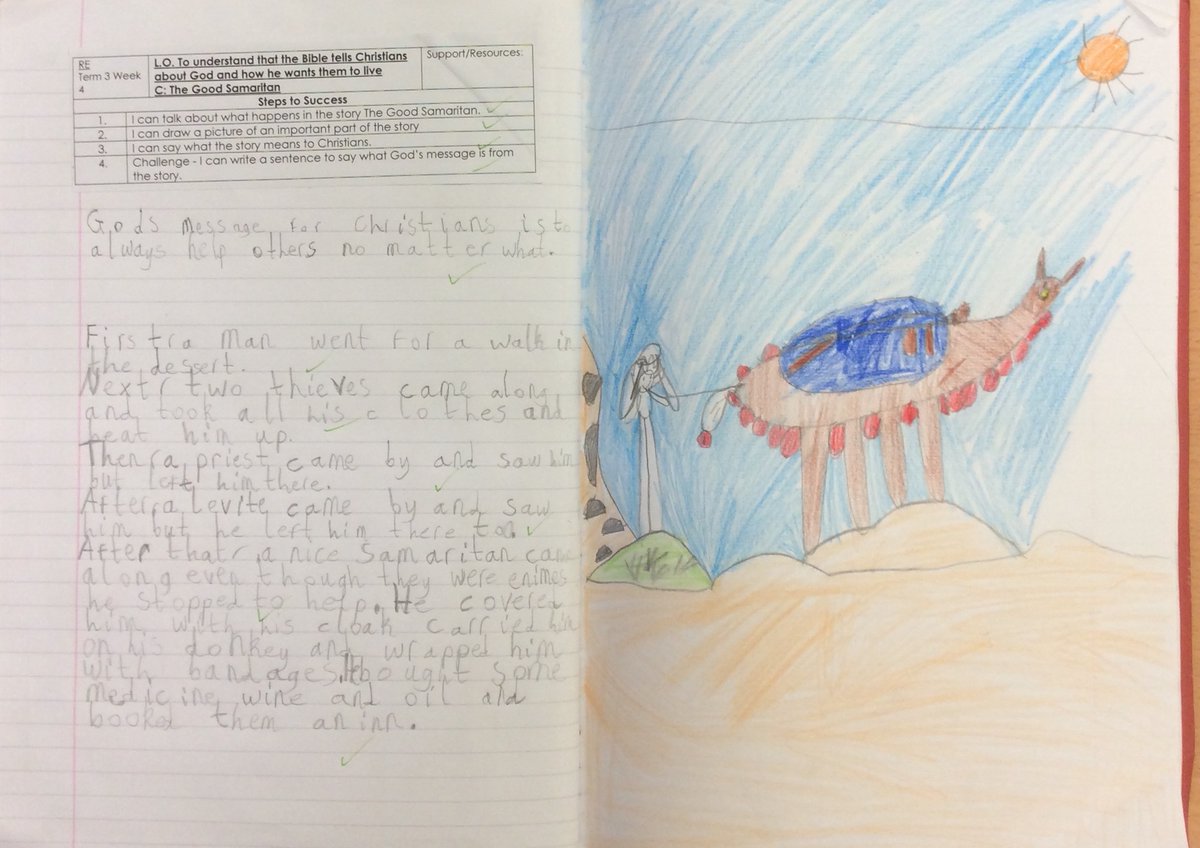 RE
Term 3 Week
4
L.O. To understand that the Bible tells Christians
about God and how he wants them to live
C: The Good Samaritan
Support/Resources:
Steps to Success
1. I can talk about what happens in the story The Good Samaritan.
2. I can draw a picture of an important part of the story
3. I can say what the story means to Christians.
4. Challenge - I can write a sentence to say what God's message is from
the story.
God's message for Christians is to
always help others no matter what.
First, a man went for a walk in
the dessert.
Next, two thieves came along
and took all his clothes and
beat him up.
Then, a priest came by and saw him
but left him there.
After, a Levite came by and saw
him but he left him there too.
After that, a nice Samaritan came
along even though they were enimes
he stopped to help. He covered
him with his cloak carried him
on his donkey and wrapped him
with bandages. He bought some
medicine, wine and oil and
booked them an inn.